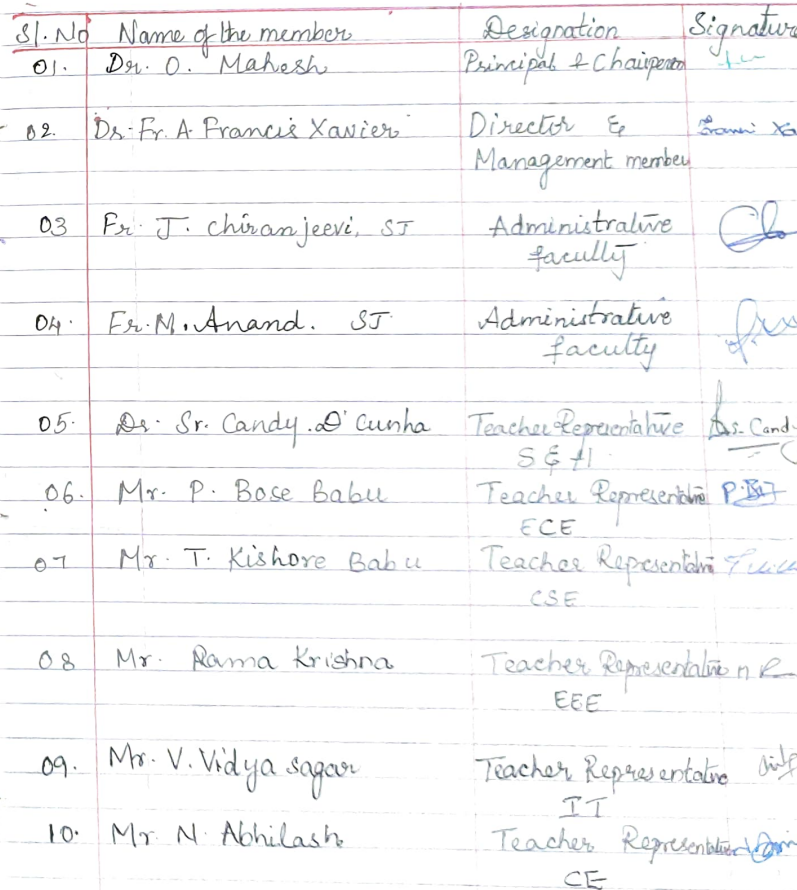 Sl. No Name of the member Designation Signature
01. Dr. O. Mahesh Principal & Chairperson
02. Dr. Fr. A. Francis Xavier Director &
Management member
03 Fr. J. Chiranjeevi, SJ Administrative
faculty
04. Fr. M. Anand. SJ Administrative
faculty
05. Dr. Sr. Candy. D'Cunha Teacher Representative
S & H
06. Mr. P. Bose Babu Teacher Representative
ECE
07 Mr. T. Kishore Babu Teacher Representative
CSE
08 Mr. Rama Krishna Teacher Representative
EEE
09. Mr. V. Vidya sagar Teacher Representative
IT
10. Mr N. Abhilash Teacher Representative
CE